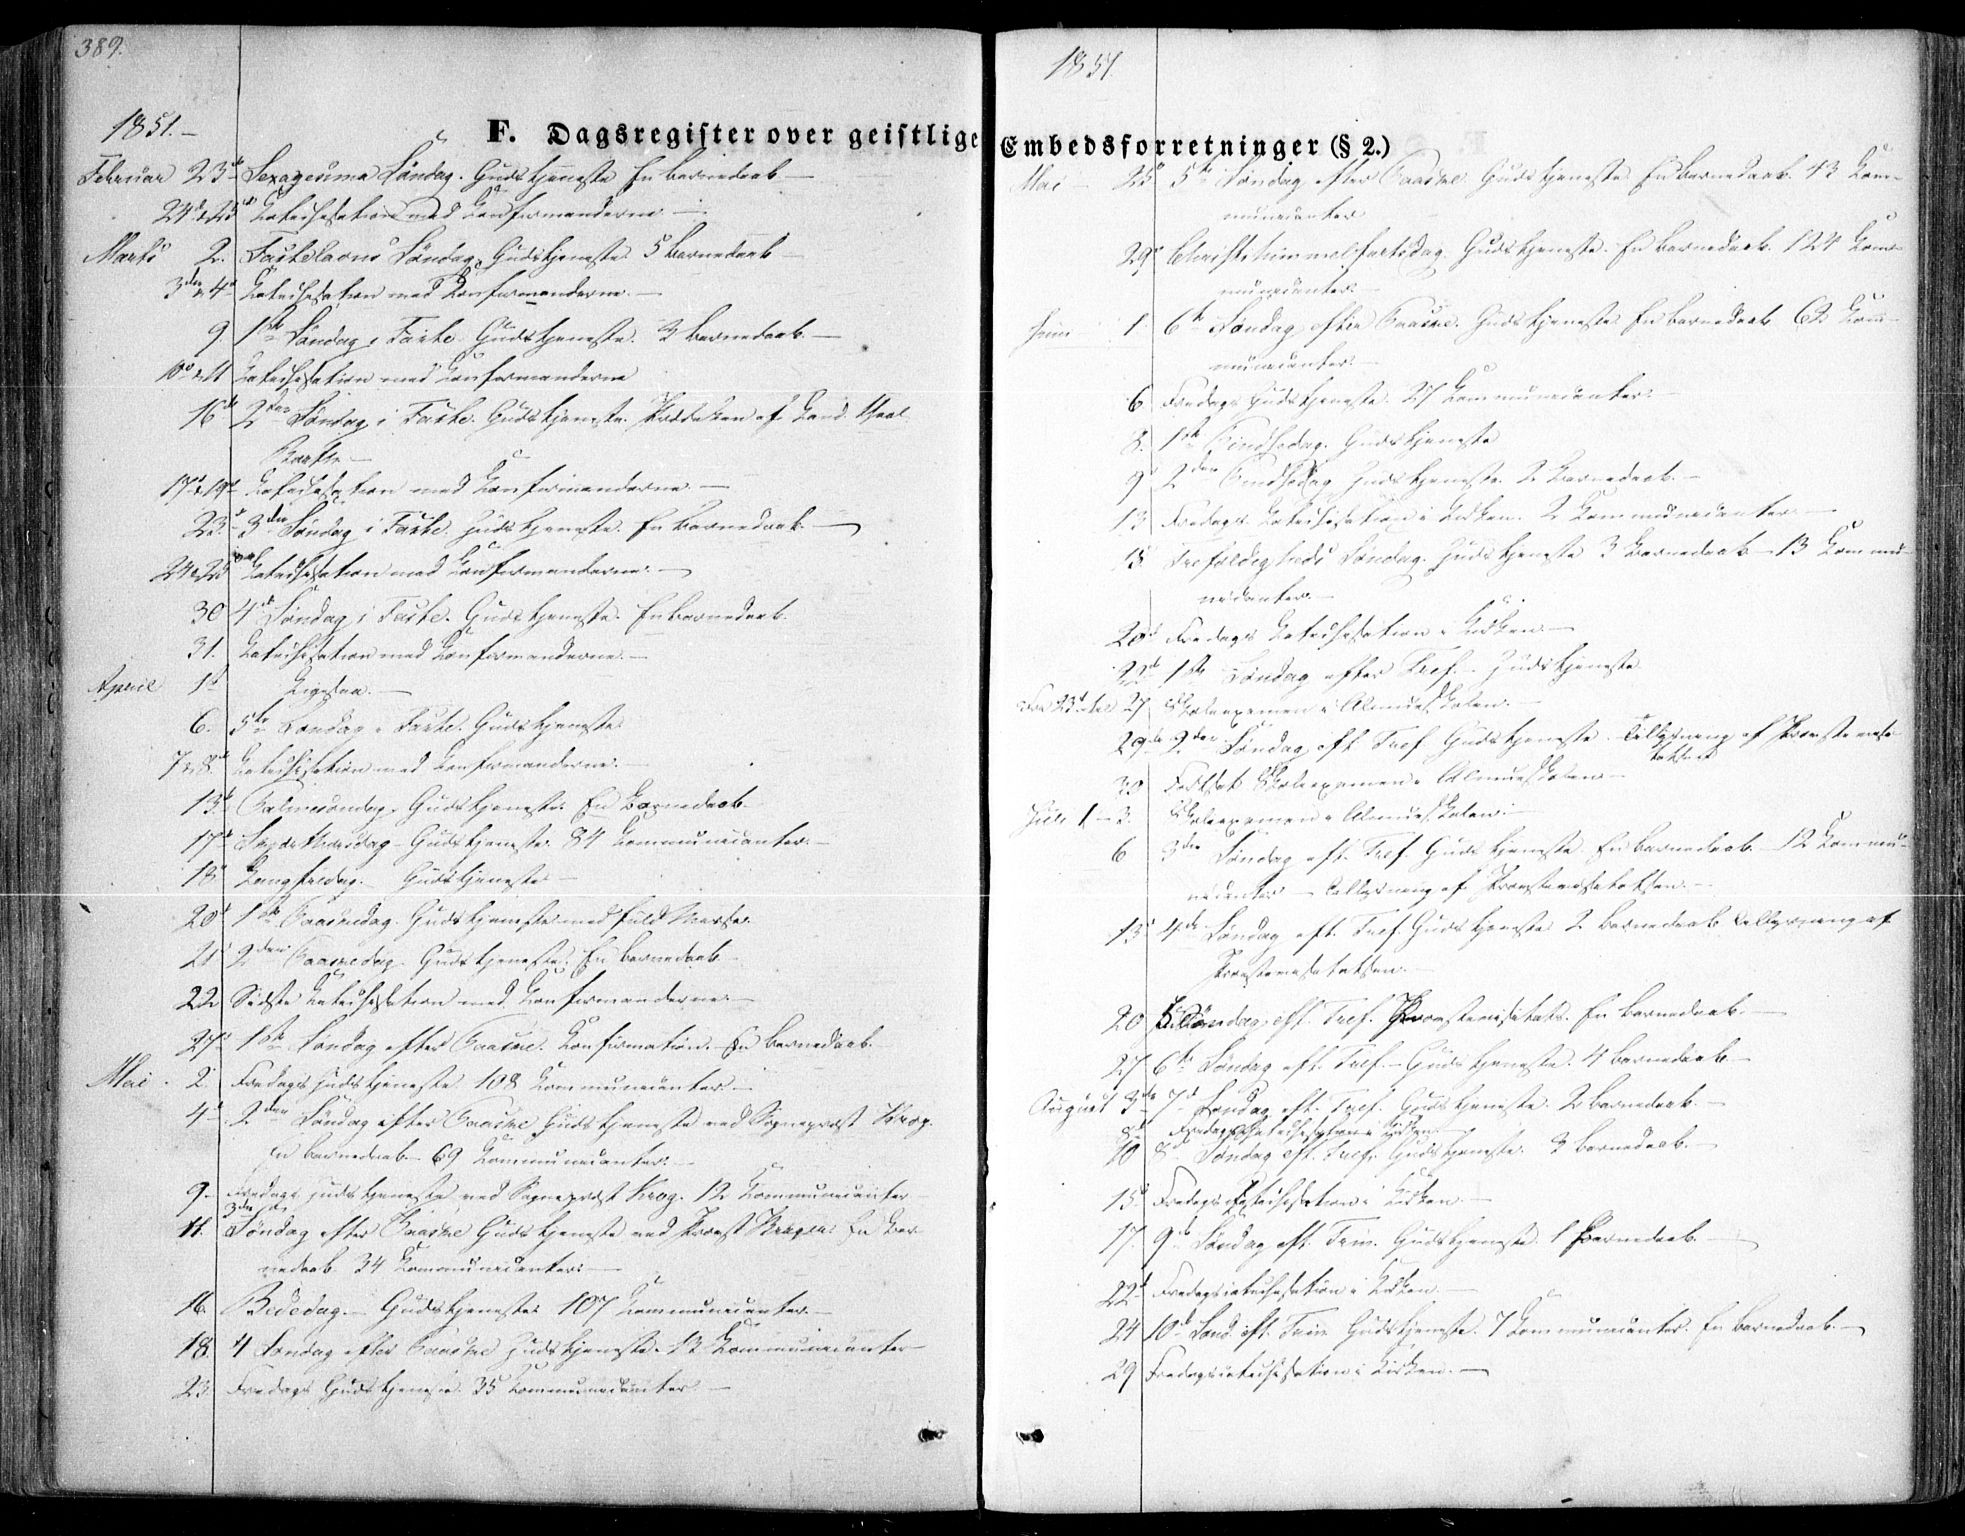 389.
1851.
F. Dagsregister over geistlige
Februar 23de Sexagesima Søndag. Gudstjeneste En Barnedaab
24de & 25de Katechisation med Konfirmanderne
Marts 2. Fastelavns Søndag. Gudstjeneste 5 Barnedaab
3die & 4de Katechisation med Konfirmanderne.
9 1ste Søndag i Faste. Gudstjeneste. 3 Barnedaab.
10de & 11 Katechisation med Konfirmanderne
16de 2den Søndag i Faste. Gudstjeneste. Prædiken af Cand. theol.
17de & 19de Katechisation med Konfirmanderne
23de 3die Søndag i Faste. Gudstjeneste. En Barnedaab.
24 & 25de Katechisation med Konfirmanderne.
30 4de Søndag i Faste. Gudstjeneste. En Barnedaab.
31. Katechisation med Konfirmanderne.
April 1ste
6. 5te Søndag i Faste. Gudstjeneste
7 & 8de Katechisation med Konfirmanderne.
13de Palmesøndag. Gudstjeneste. En Barnedaab.
17de Skjærthorsdag Gudstjeneste. 84 Kommunicanter.
18de Langfredag. Gudstjeneste
20de 1ste Paaskedag. Gudstjeneste med fuld Messe.
21de 2den Paaskedag. Gudstjeneste. En Barnedaab
22 Sidste Katechisation med Konfirmanderne.
27de 1ste Søndag efter Paaske. Konfirmation. En Barnedaab.
Mai. 2. Fredags Gudstjeneste 108 Kommunicanter
4de 2den Søndag efter Paaske Gudstjeneste ved Sognepræst Krog.
En Barnedaab. 69 Kommunicanter.
9. Fredags Gudstjeneste ved Sognepræst Krog. 12 Kommunicanter
11. 3die Søndag efter Paaske Gudstjeneste ved Provst En Bar-
nedaab 34 Kommunicanter.
16. Bededag. Gudstjeneste 107 Kommunicanter.
18. 4 Søndag efter Paaske Gudstjeneste. 13 Kommunicanter
23. Fredags Gudstjeneste. 35 Kommunicanter
1851.
Embedsforretninger (§ 2.)
Mai 25de 5te Søndag efter Paaske Gudstjeneste En Barnedaab. 43 Kom-
municanter
29de Christi Himmelfartsdag. Gudstjeneste. En Barnedaab. 124 Kom-
municanter
Juni 1 6te Søndag efter Paaske. Gudstjeneste En Barnedaab 62 Kom-
municanter.
6 Fredags Gudstjeneste. 27 Kommunicanter.
8. 1ste Pindsedag. Gudstjeneste
9de 2den Pindsedag Gudstjeneste. 2 Barnedaab.
13 Fredags Katechisation i Kirken. 2 Kommunicanter.
15 Trefoldigheds Søndag. Gudstjeneste 3 Barnedaab 13 Kommu-
nicanter.
20de Fredags Katechisation i Kirken.
22de 1ste Søndag efter Tref. Gudstjeneste
Fra 23de til 27 Skoleexamen i Almueskolen.
29de 2den Søndag eft. Tref. Gudstjeneste. Tillysning af Provstevisi-
tatsen
30 Fortsat Skoleexamen i Almueskolen
Juli 1 - 3. Skoleexamen i Almueskolen
6 3die Søndag eft. Tref. Gudstjeneste En Barnedaab. 12 Kommu-
nicanter Tillysning af Provstevisitatsen.
13de 4de Søndag eft. Tref. Gudstjeneste 2 Barnedaab Tillysning af
Provstevisitatsen.
20 5te Søndag eft. Tref. Provstevisitats. En Barnedaab.
27 6te Søndag eft. Tref. Gudstjeneste. 4 Barnedaab
August 3die 7de Søndag eft. Tref. Gudstjeneste. 2 Barnedaab.
8de Fredags Katechisation i Kirken.
10 8de Søndag eft. Tref. Gudstjeneste. 3 Barnedaab.
15de Fredags Katechisation i Kirken.
17. 9de Søndag eft. Trin. Gudstjeneste. 1 Barnedaab.
22de Fredagscatechisation i Kirken
24 10de Sønd. eft. Trin. Gudstjeneste. 7 Kommunicanter. En Barnedaab.
29 Fredagscatechisation i Kirken.